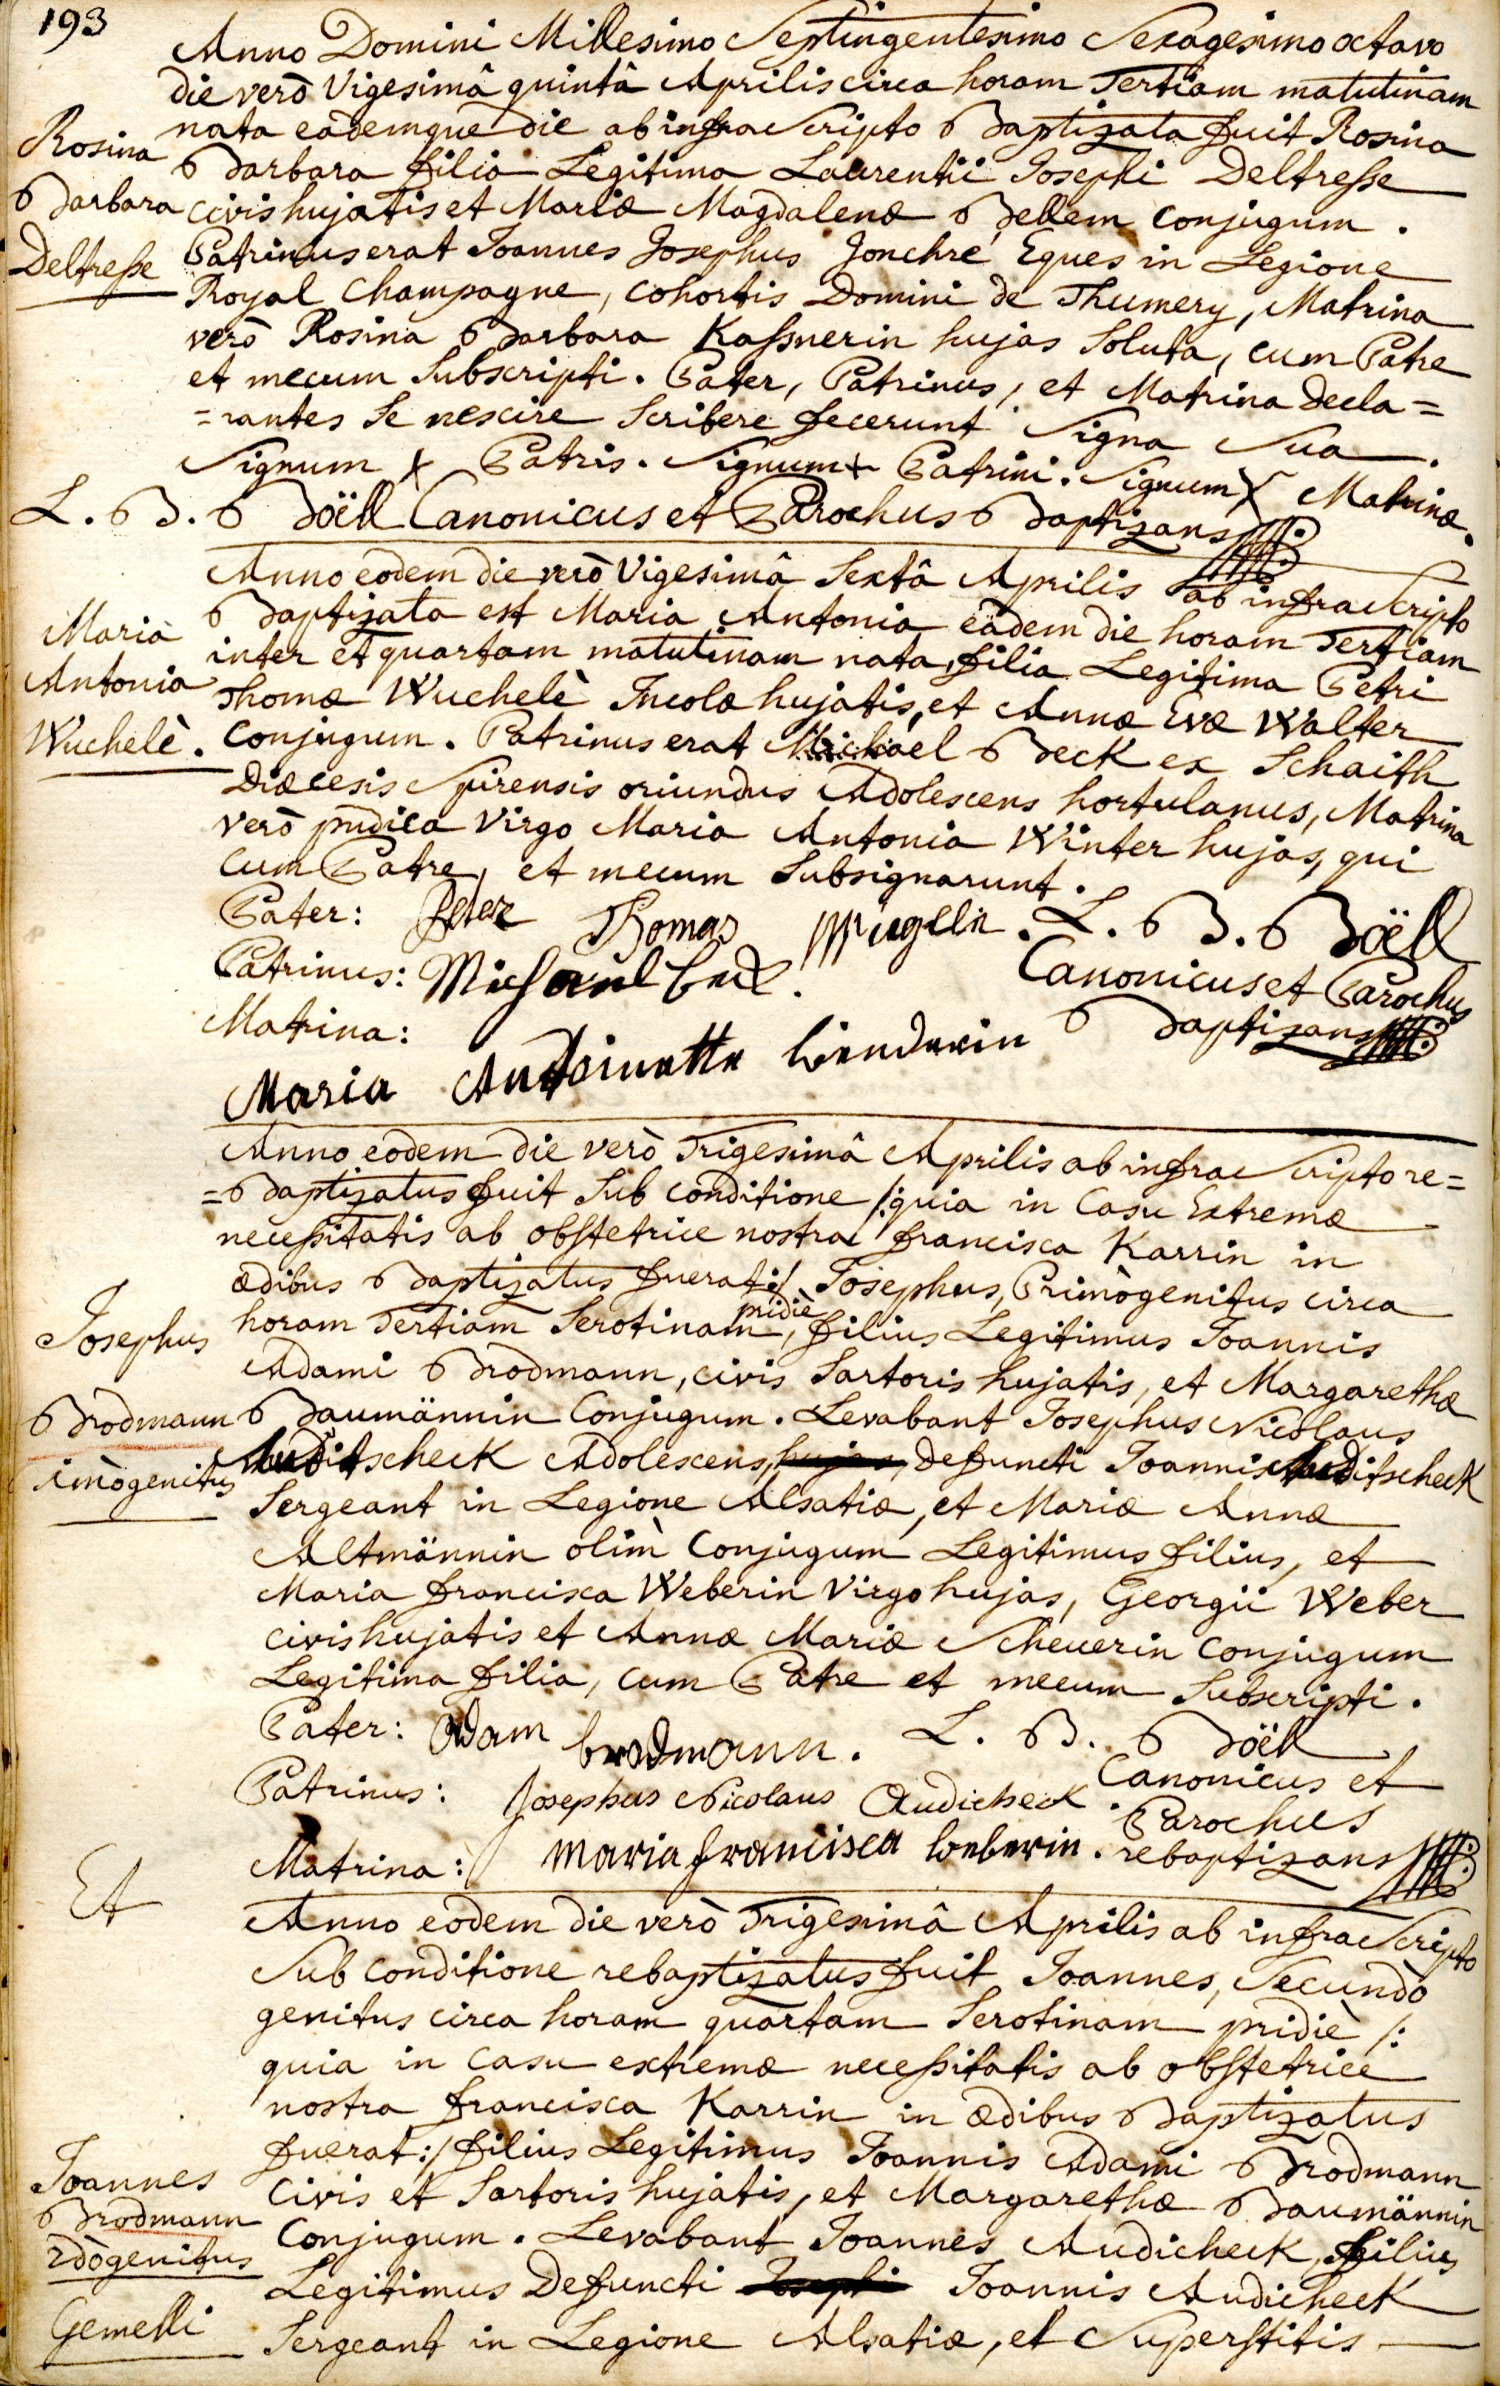 193
Anno Domini Millesimo Septingentesimo Sexagesimo octavo
die verò Vigesimâ quintâ Aprilis circa horam Tertiam matutinam
nata eâdemque die ab infra Scripto Baptizata fuit Rosina
Barbara filia Legitima Laurentii Josephi Deltresse
civis hujatis et Mariæ Magdalenæ Bellem Conjugum.
Rosina
Barbara
Deltresse
Patrinus erat Joannes Josephus Jonchre Eques in Legione
Royal Champagne, Cohortis Domini de Thumery, Matrina
verò Rosina Barbara Kassnerin hujas Soluta, cum Patre
et mecum Subscripti. Pater, Patrinus, et Matrina decla=
=rantes Se nescire Scribere fecerunt Signa Sua.
Signum x Patris. Signum x Patrini. Signum x Matrinæ.
L. B. Böell Canonicus et Parochus Baptizans
Anno eodem die verò Vigesimâ Sextâ Aprilis ab infra Scripto
Baptizata est Maria Antonia eâdem die horam Tertiam
inter et quartam matutinam nata, filia Legitima Petri
Thomæ Wuchelè Incolæ hujatis, et Annæ Evæ Walter
Conjugum. Patrinus erat Michael Beck ex Schaith
Maria
Antonia
Wuchelè.
Diæcesis Spirensis oriundus Adolescens hortulanus, Matrina
verò pudica Virgo Maria Antonia Winter hujas, qui
cum Patre, et mecum Subsignarunt.
Pater: Peter Thomas . L. B. Böell
Patrinus: Michael beck. Canonicus et Parochus
Matrina: Baptizans
Maria Antoinette
Anno eodem die verò Trigesimâ Aprilis ab infra Scripto re=
=Baptizatus fuit Sub conditione /: quia in Casu Extremæ
necessitatis ab obstetrice nostra francisca Karrin in
ædibus Baptizatus fuerat :/ Josephus, Primògenitus circa
horam Tertiam Serotinam pridiè, filius Legitimus Joannis
Adami Brodmann, civis Sartoris hujatis, et Margarethæ
Baumännin Conjugum. Levabant Josephus Nicolaus
Auditscheck Adolescens, hujas, Defuncti Joannis Auditscheck
Josephus
Brodmann
imògenitus
Sergeant in Legione Alsatiæ, et Mariæ Annæ
Altmännin olim Conjugum Legitimus filius, et
Maria francisca Weberin Virgo hujas, Georgii Weber
civis hujatis et Annæ Mariæ Scheuerin Conjugum
Legitima filia, cum Patre et mecum Subscripti.
Pater: Adam brodmann. L. B. Böell
Patrinus: Josephus Nicolaus Audicheck. Canonicus et
Parochus
Matrina: Maria francisca weberin. rebaptizans
Et
Anno eodem die verò Trigesimâ Aprilis ab infra Scripto
Sub conditione rebaptizatus fuit Joannes, Secundò
genitus circa horam quartam Serotinam pridiè /:
quia in Casu extremæ necessitatis ab obstetrice
nostra francisca Karrin in ædibus Baptizatus
fuerat :/ filius Legitimus Joannis Adami Brodmann
Civis et Sartoris hujatis, et Margarethæ Baumännin
Conjugum. Levabant Joannes Audicheck, filius
Legitimus Defuncti Josephi Joannis Audicheck
Sergeant in Legione Alsatiæ, et Superstitis
Joannes
Brodmann
2dògenitus
Gemelli